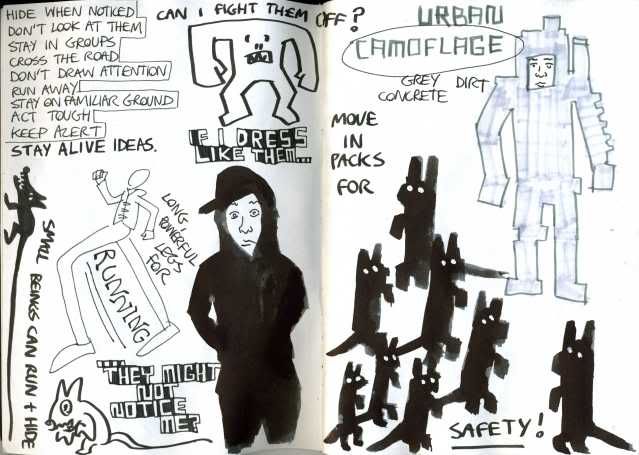 HIDE WHEN NOTICED
DON'T LOOK AT THEM
STAY IN GROUPS
CROSS THE ROAD
DON'T DRAW ATTENTION
RUN AWAY
STAY ON FAMILIAR GROUND
ACT TOUGH
KEEP ALERT
STAY ALIVE IDEAS.
CAN I FIGHT THEM OFF?
IF I DRESS
LIKE THEM...
LONG,
POWERFUL
LEGS
FOR
RUNNING
SMALL BEINGS CAN RUN + HIDE
...THEY MIGHT
NOT
NOTICE
ME?
URBAN
CAMOFLAGE
GREY DIRT
CONCRETE
MOVE
IN
PACKS
FOR
SAFETY!